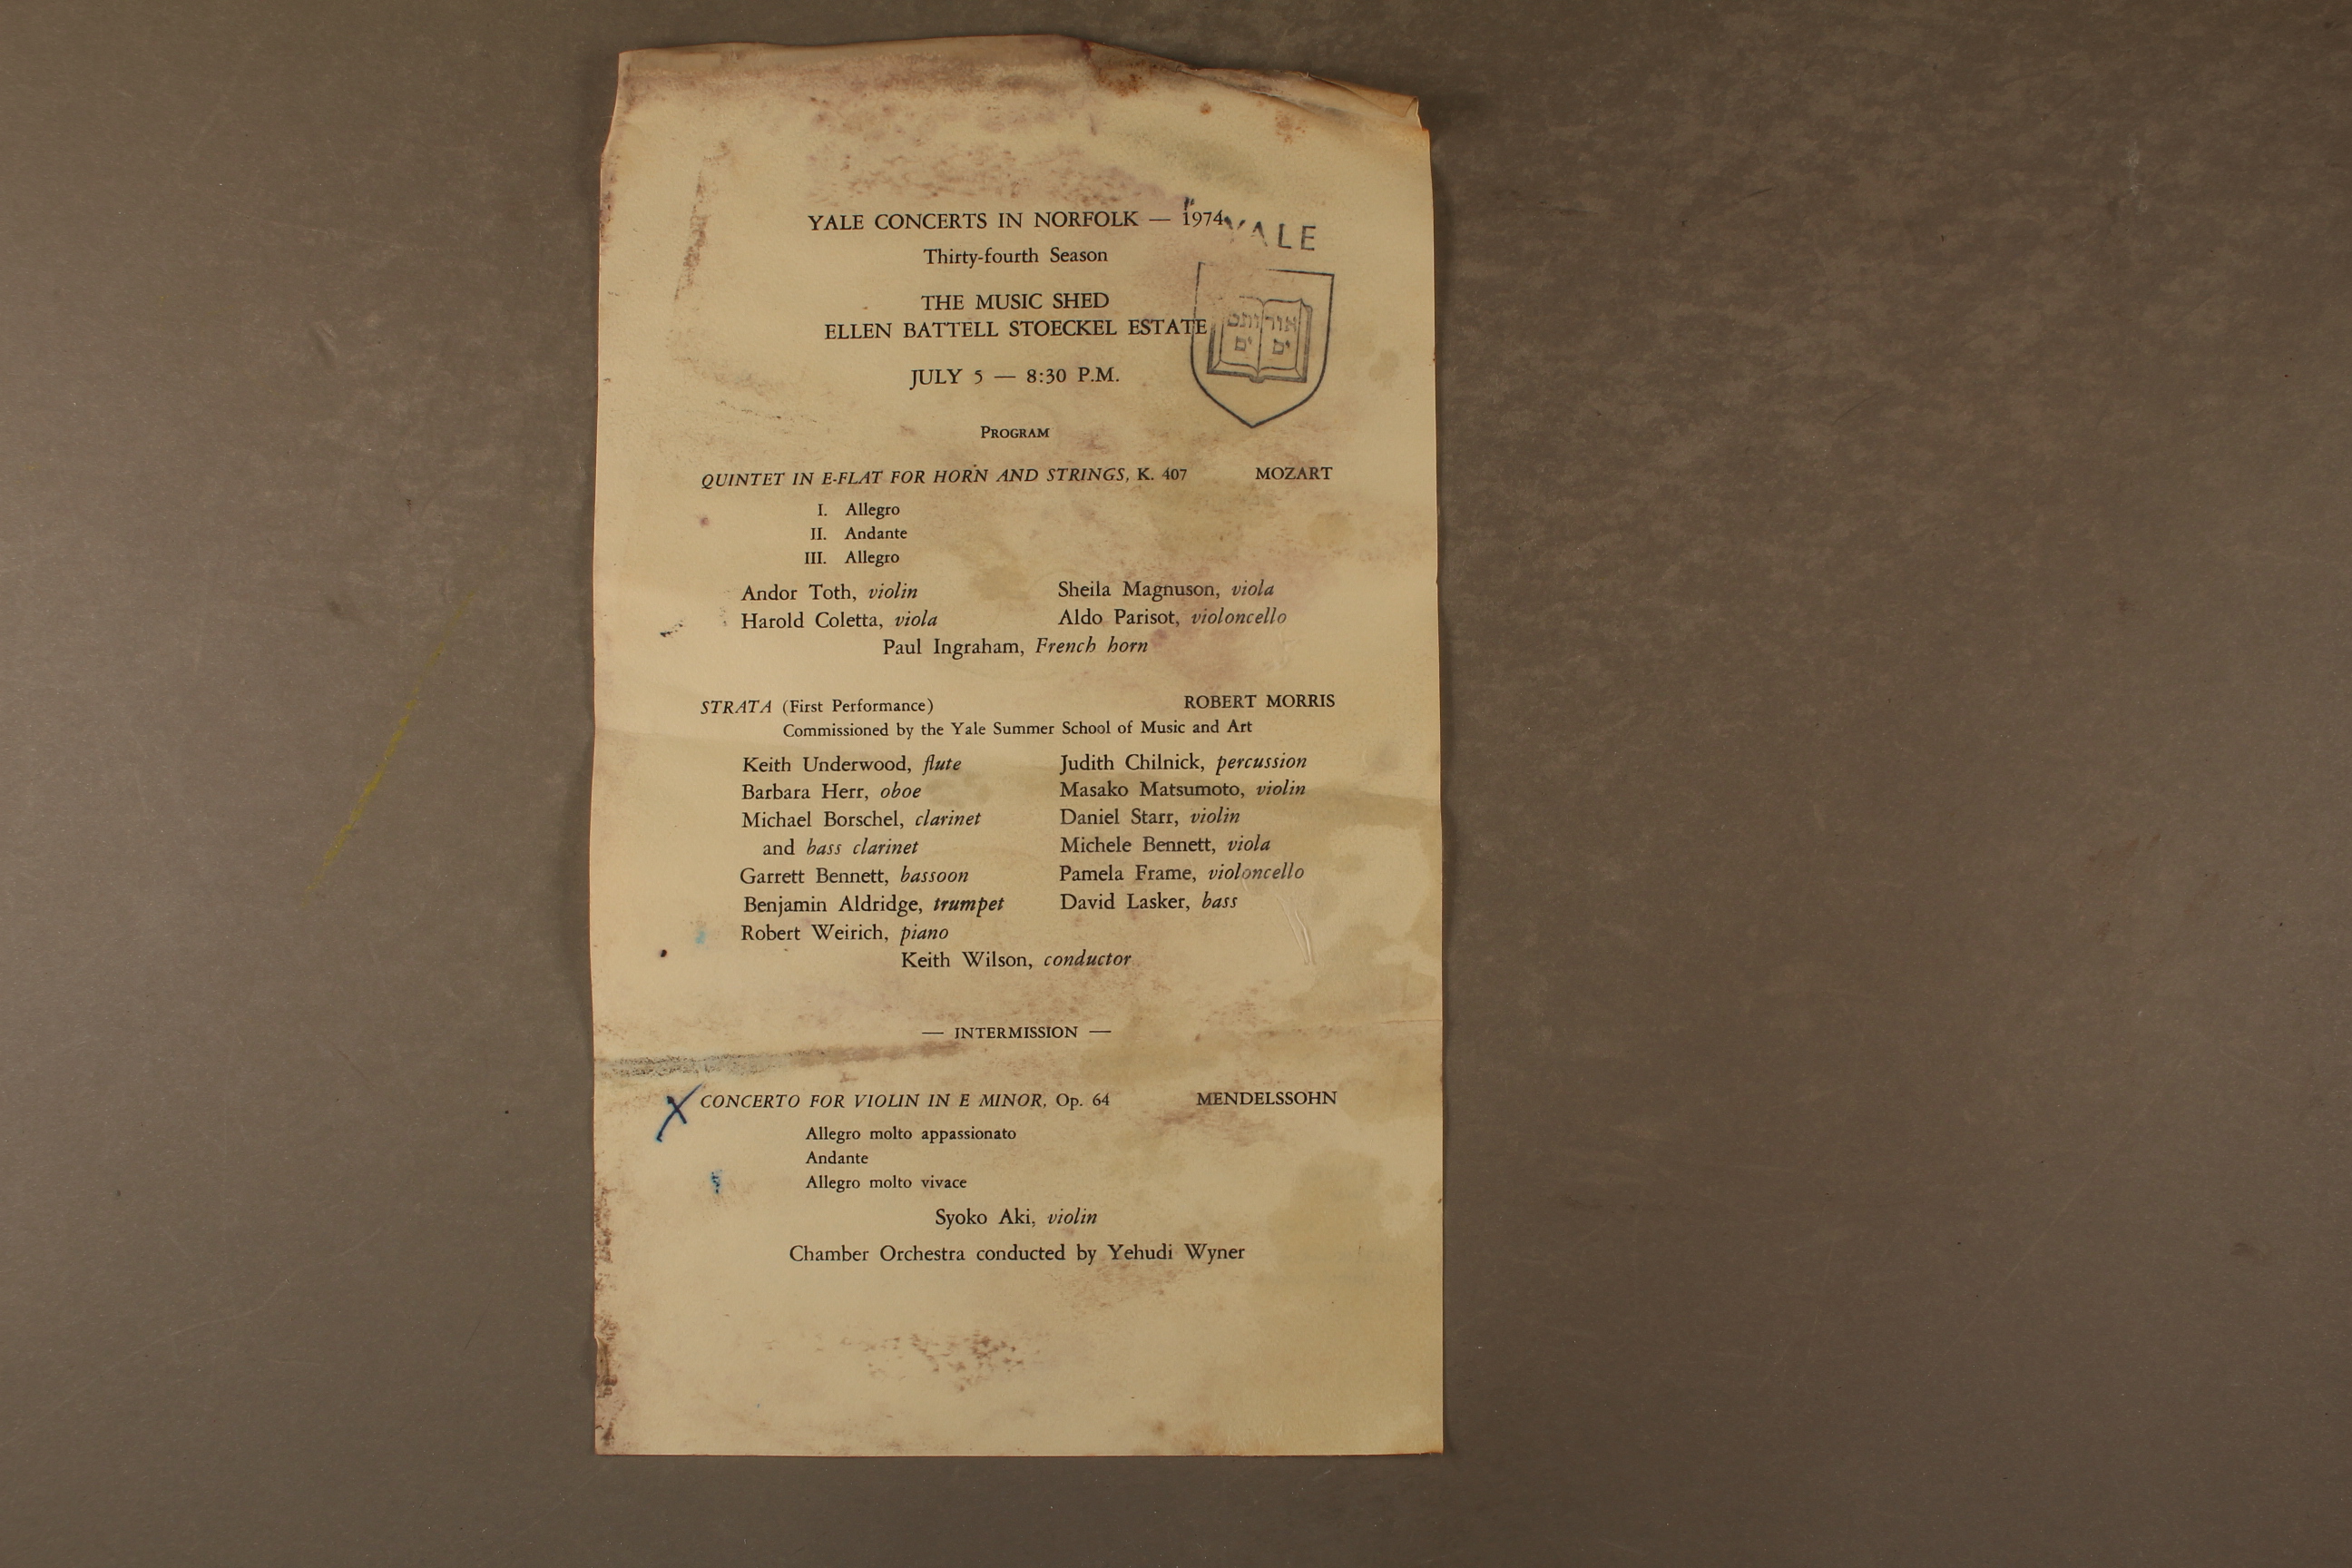 YALE CONCERTS IN NORFOLK — 1974
YALE
Thirty-fourth Season
THE MUSIC SHED
ELLEN BATTELL STOECKEL ESTATE
אורים ותמים
JULY 5 — 8:30 P.M.
PROGRAM
QUINTET IN E-FLAT FOR HORN AND STRINGS, K. 407 MOZART
I. Allegro
II. Andante
III. Allegro
Andor Toth, violin Sheila Magnuson, viola
Harold Coletta, viola Aldo Parisot, violoncello
Paul Ingraham, French horn
STRATA (First Performance) ROBERT MORRIS
Commissioned by the Yale Summer School of Music and Art
Keith Underwood, flute Judith Chilnick, percussion
Barbara Herr, oboe Masako Matsumoto, violin
Michael Borschel, clarinet Daniel Starr, violin
and bass clarinet Michele Bennett, viola
Garrett Bennett, bassoon Pamela Frame, violoncello
Benjamin Aldridge, trumpet David Lasker, bass
Robert Weirich, piano
Keith Wilson, conductor
— INTERMISSION —
X CONCERTO FOR VIOLIN IN E MINOR, Op. 64 MENDELSSOHN
Allegro molto appassionato
Andante
Allegro molto vivace
Syoko Aki, violin
Chamber Orchestra conducted by Yehudi Wyner